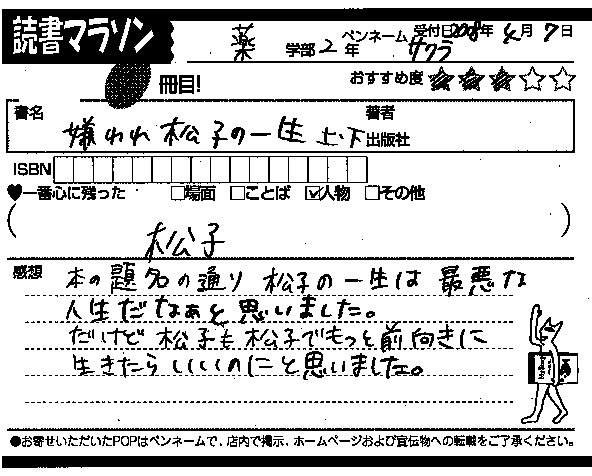 読書マラソン
薬 学部 2 年 ペンネーム サクラ 受付日2008年 4月 7日
冊目!
おすすめ度 ★★★☆☆
書名 嫌われ松子の一生 上・下 著者 出版社
ISBN
♥一番心に残った □場面 □ことば ☑人物 □その他
( 松子 )
感想 本の題名の通り 松子の一生は 最悪な
人生だなぁと思いました。
だけど 松子も松子でもっと前向きに
生きたらいいのにと思いました。
●お寄せいただいたPOPはペンネームで、店内で掲示、ホームページおよび宣伝物への転載をご了承ください。